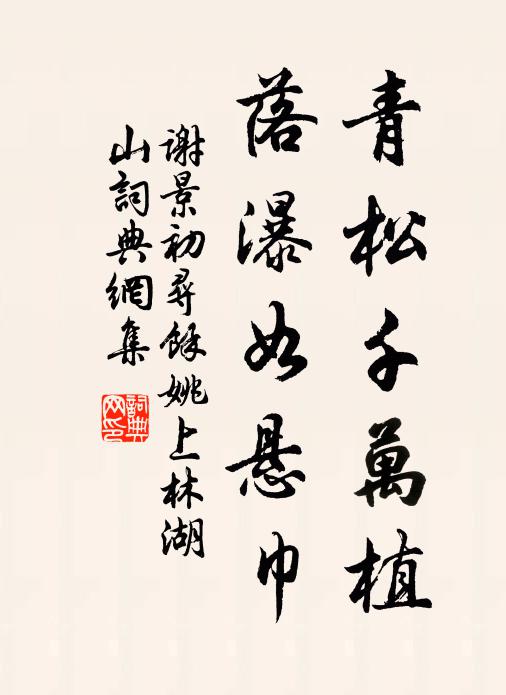 青松千萬植
落瀑如懸巾
謝景初尋餘姚上林湖
山詞典網集
詞典
网印